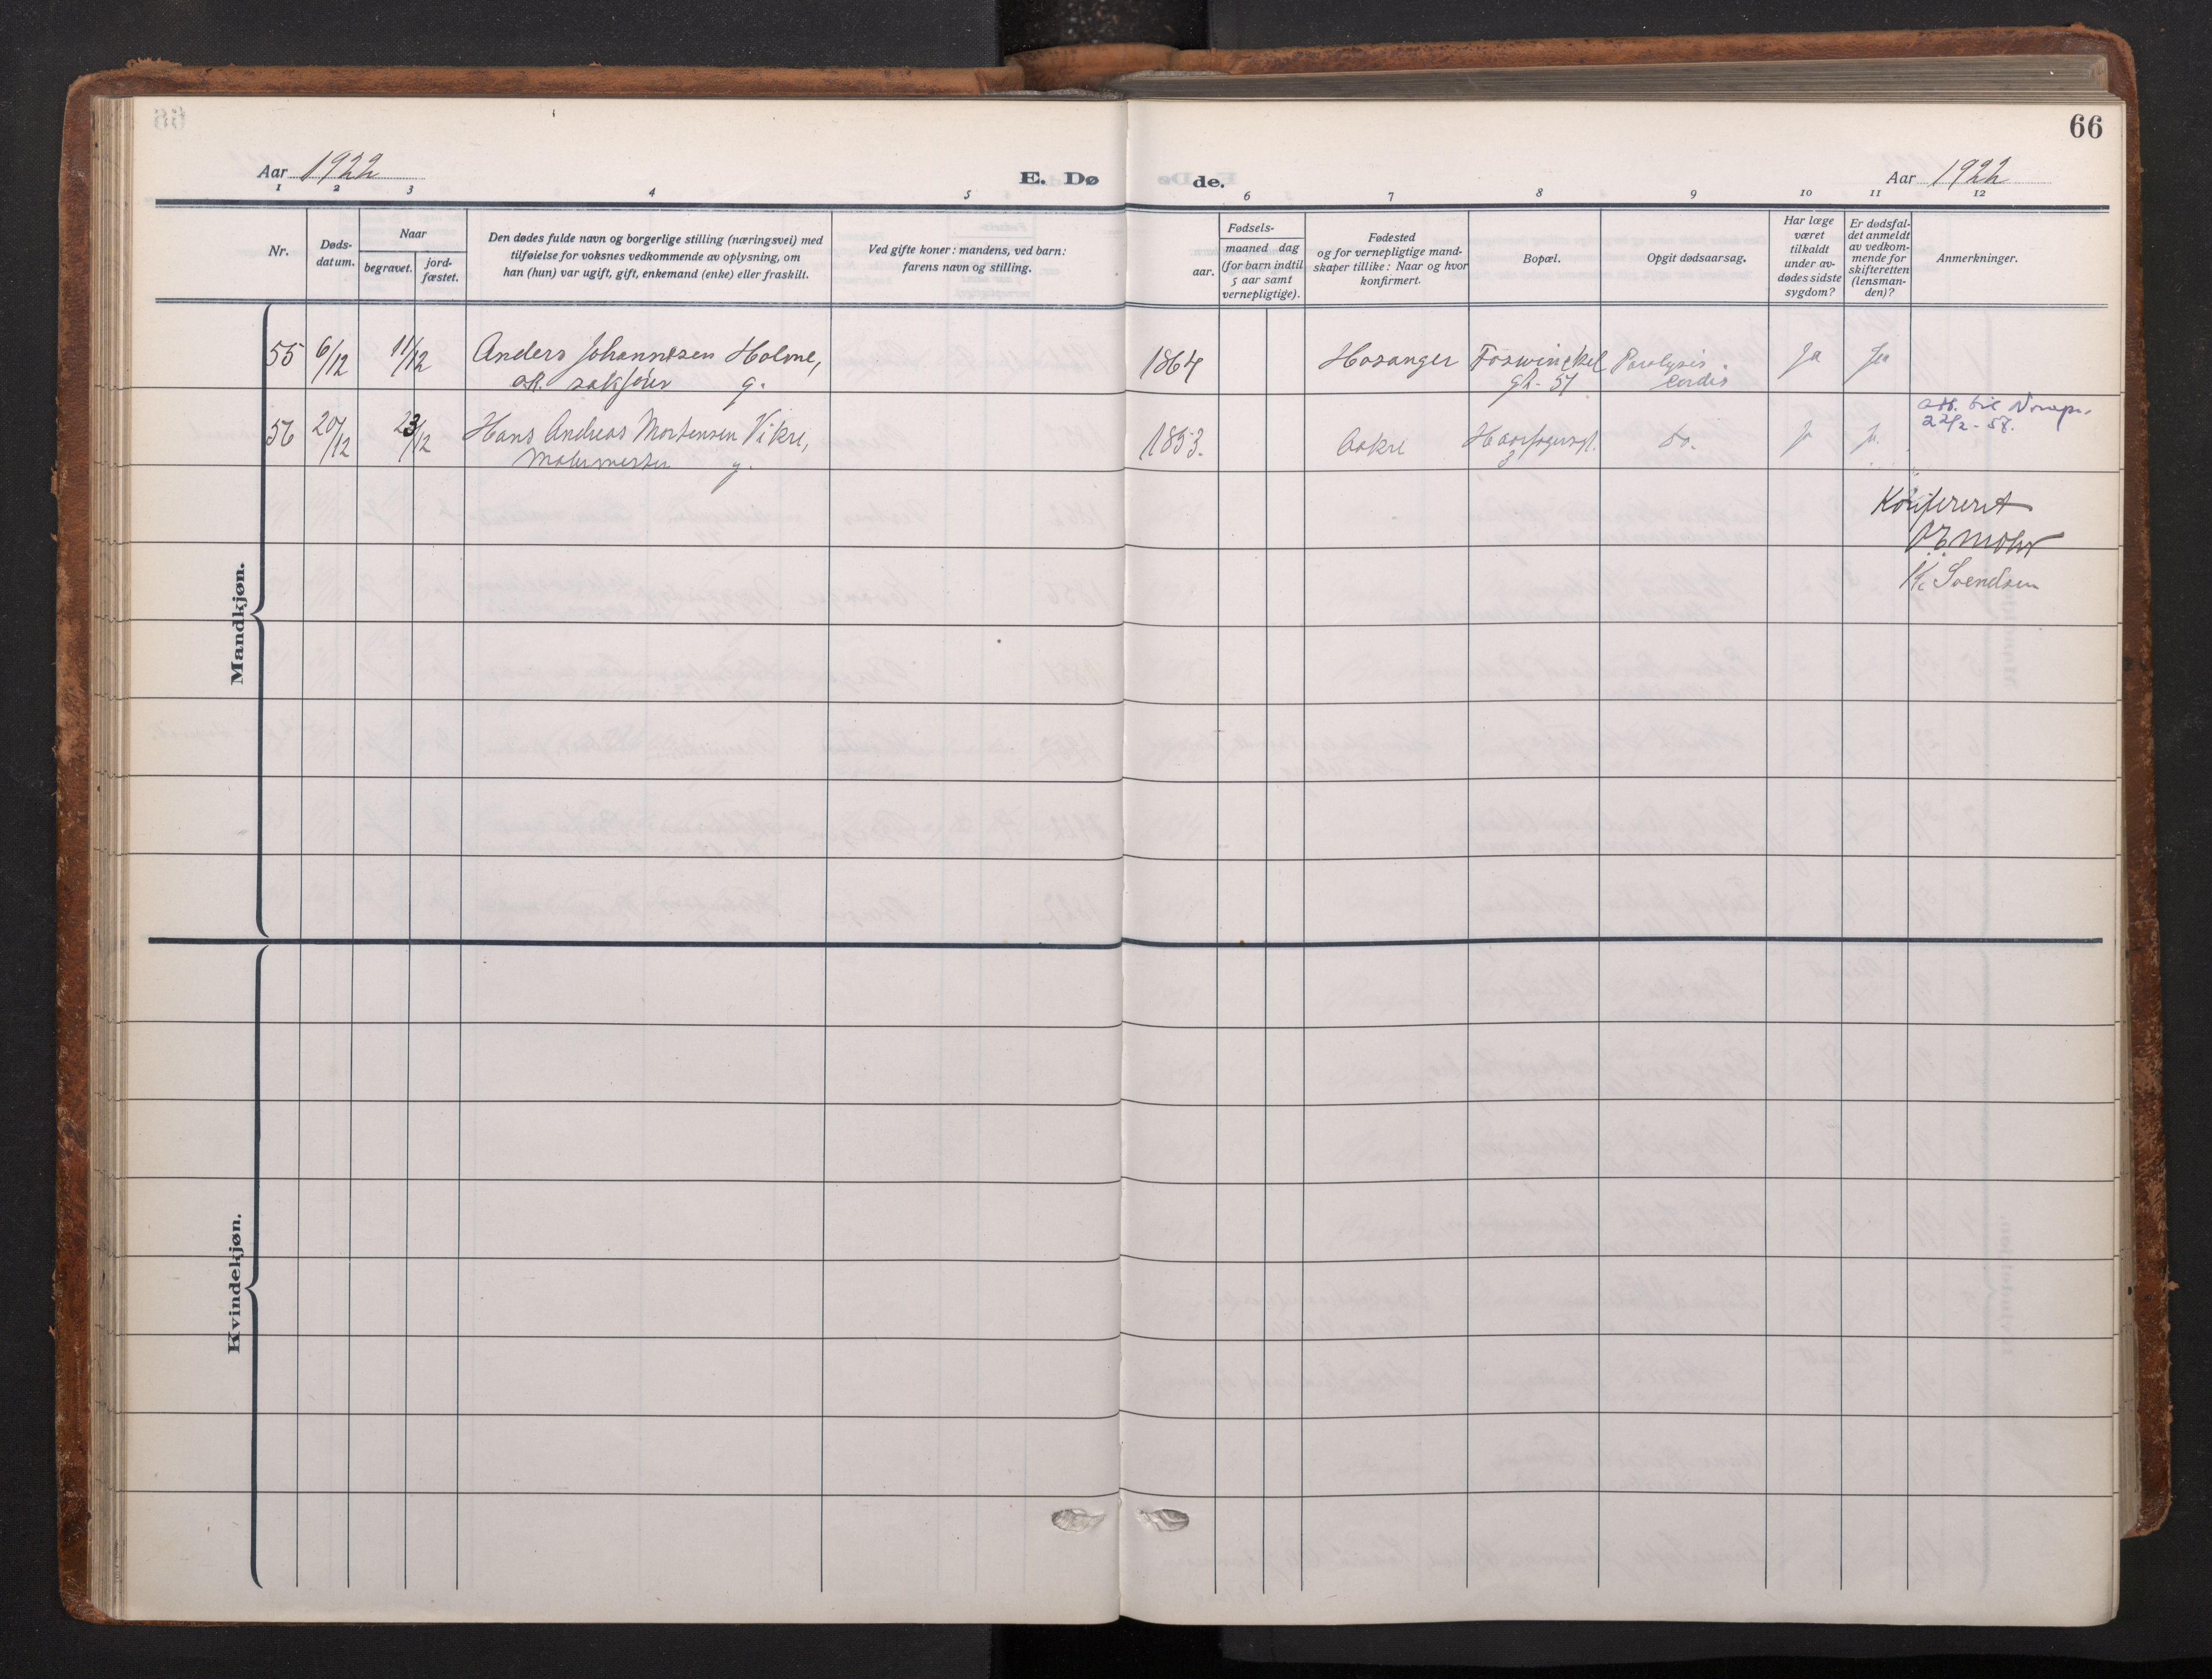 66
Aar 1922
E. Dø de.
Aar 1922
1 2 3 4 5 6 7 8 9 10 11 12
Nr.
Døds-
datum.
Naar
begravet.
jord-
fæstet.
Den dødes fulde navn og borgerlige stilling (næringsvei) med
tilføielse for voksnes vedkommende av oplysning, om
han (hun) var ugift, gift, enkemand (enke) eller fraskilt.
Ved gifte koner: mandens, ved barn:
farens navn og stilling.
Fødsels-
aar.
maaned dag
(for barn indtil
5 aar samt
vernepligtige).
Fødested
og for vernepligtige mand-
skaper tillike: Naar og hvor
konfirmert.
Bopæl.
Opgit dødsaarsag.
Har læge
været
tilkaldt
under av-
dødes sidste
sygdom?
Er dødsfal-
det anmeldt
av vedkom-
mende for
skifteretten
(lensman-
den)?
Anmerkninger.
Mandkjøn.
55 6/12 11/12 Anders Johannesen Holme, 1864 Hosanger Foswinckel Paralysis Ja Ja
o.r. sakfører g. gt. 57 cordis
56 20/12 23/12 Hans Andreas Mortensen Vikre, 1853. Aakre do. J J.
g. 3
att. til
22/2-58.
Konfereret
K. Svendsen
Kvindekjøn.